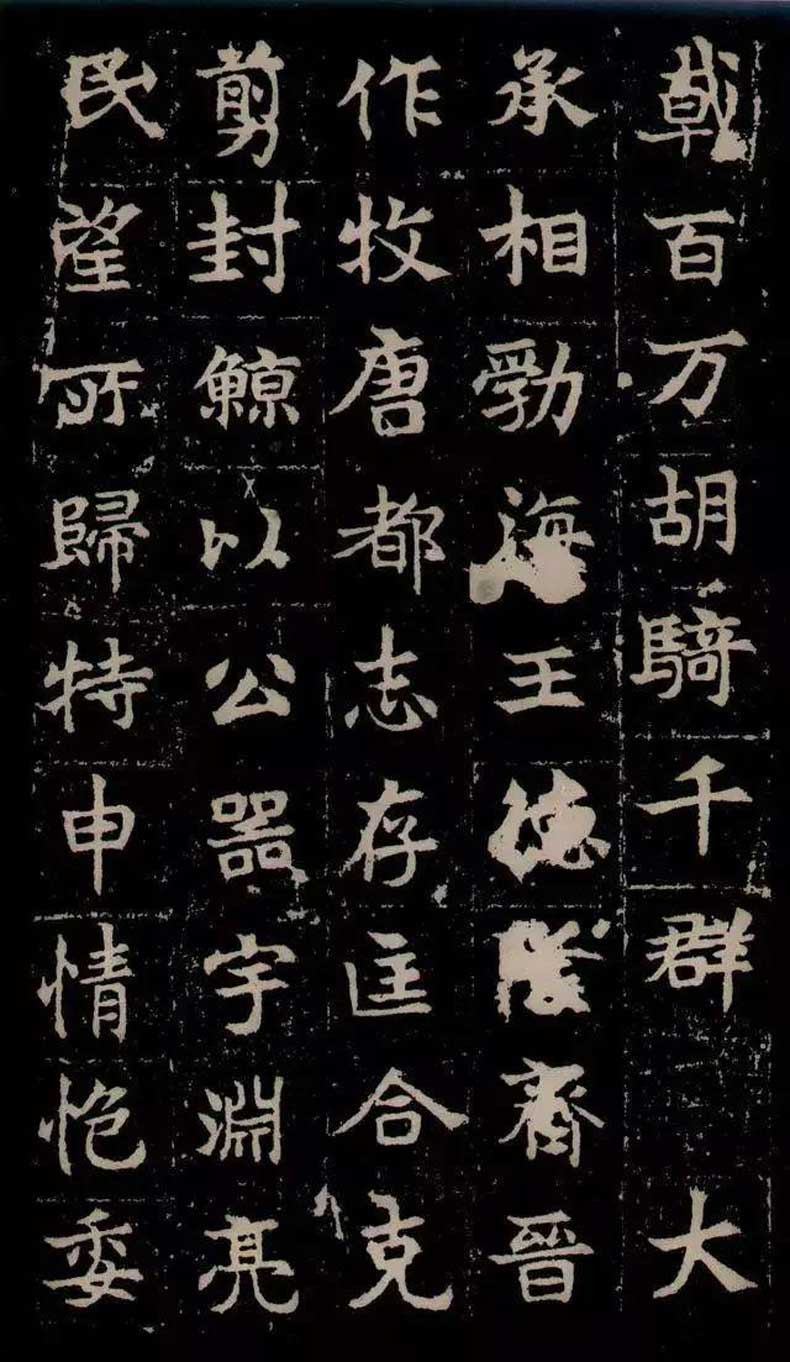 戟百万胡騎千群大
承相勃海王德齊晉
作牧唐都志存匡合克
剪封鯨以公器宇淵亮
民望所歸特申情委